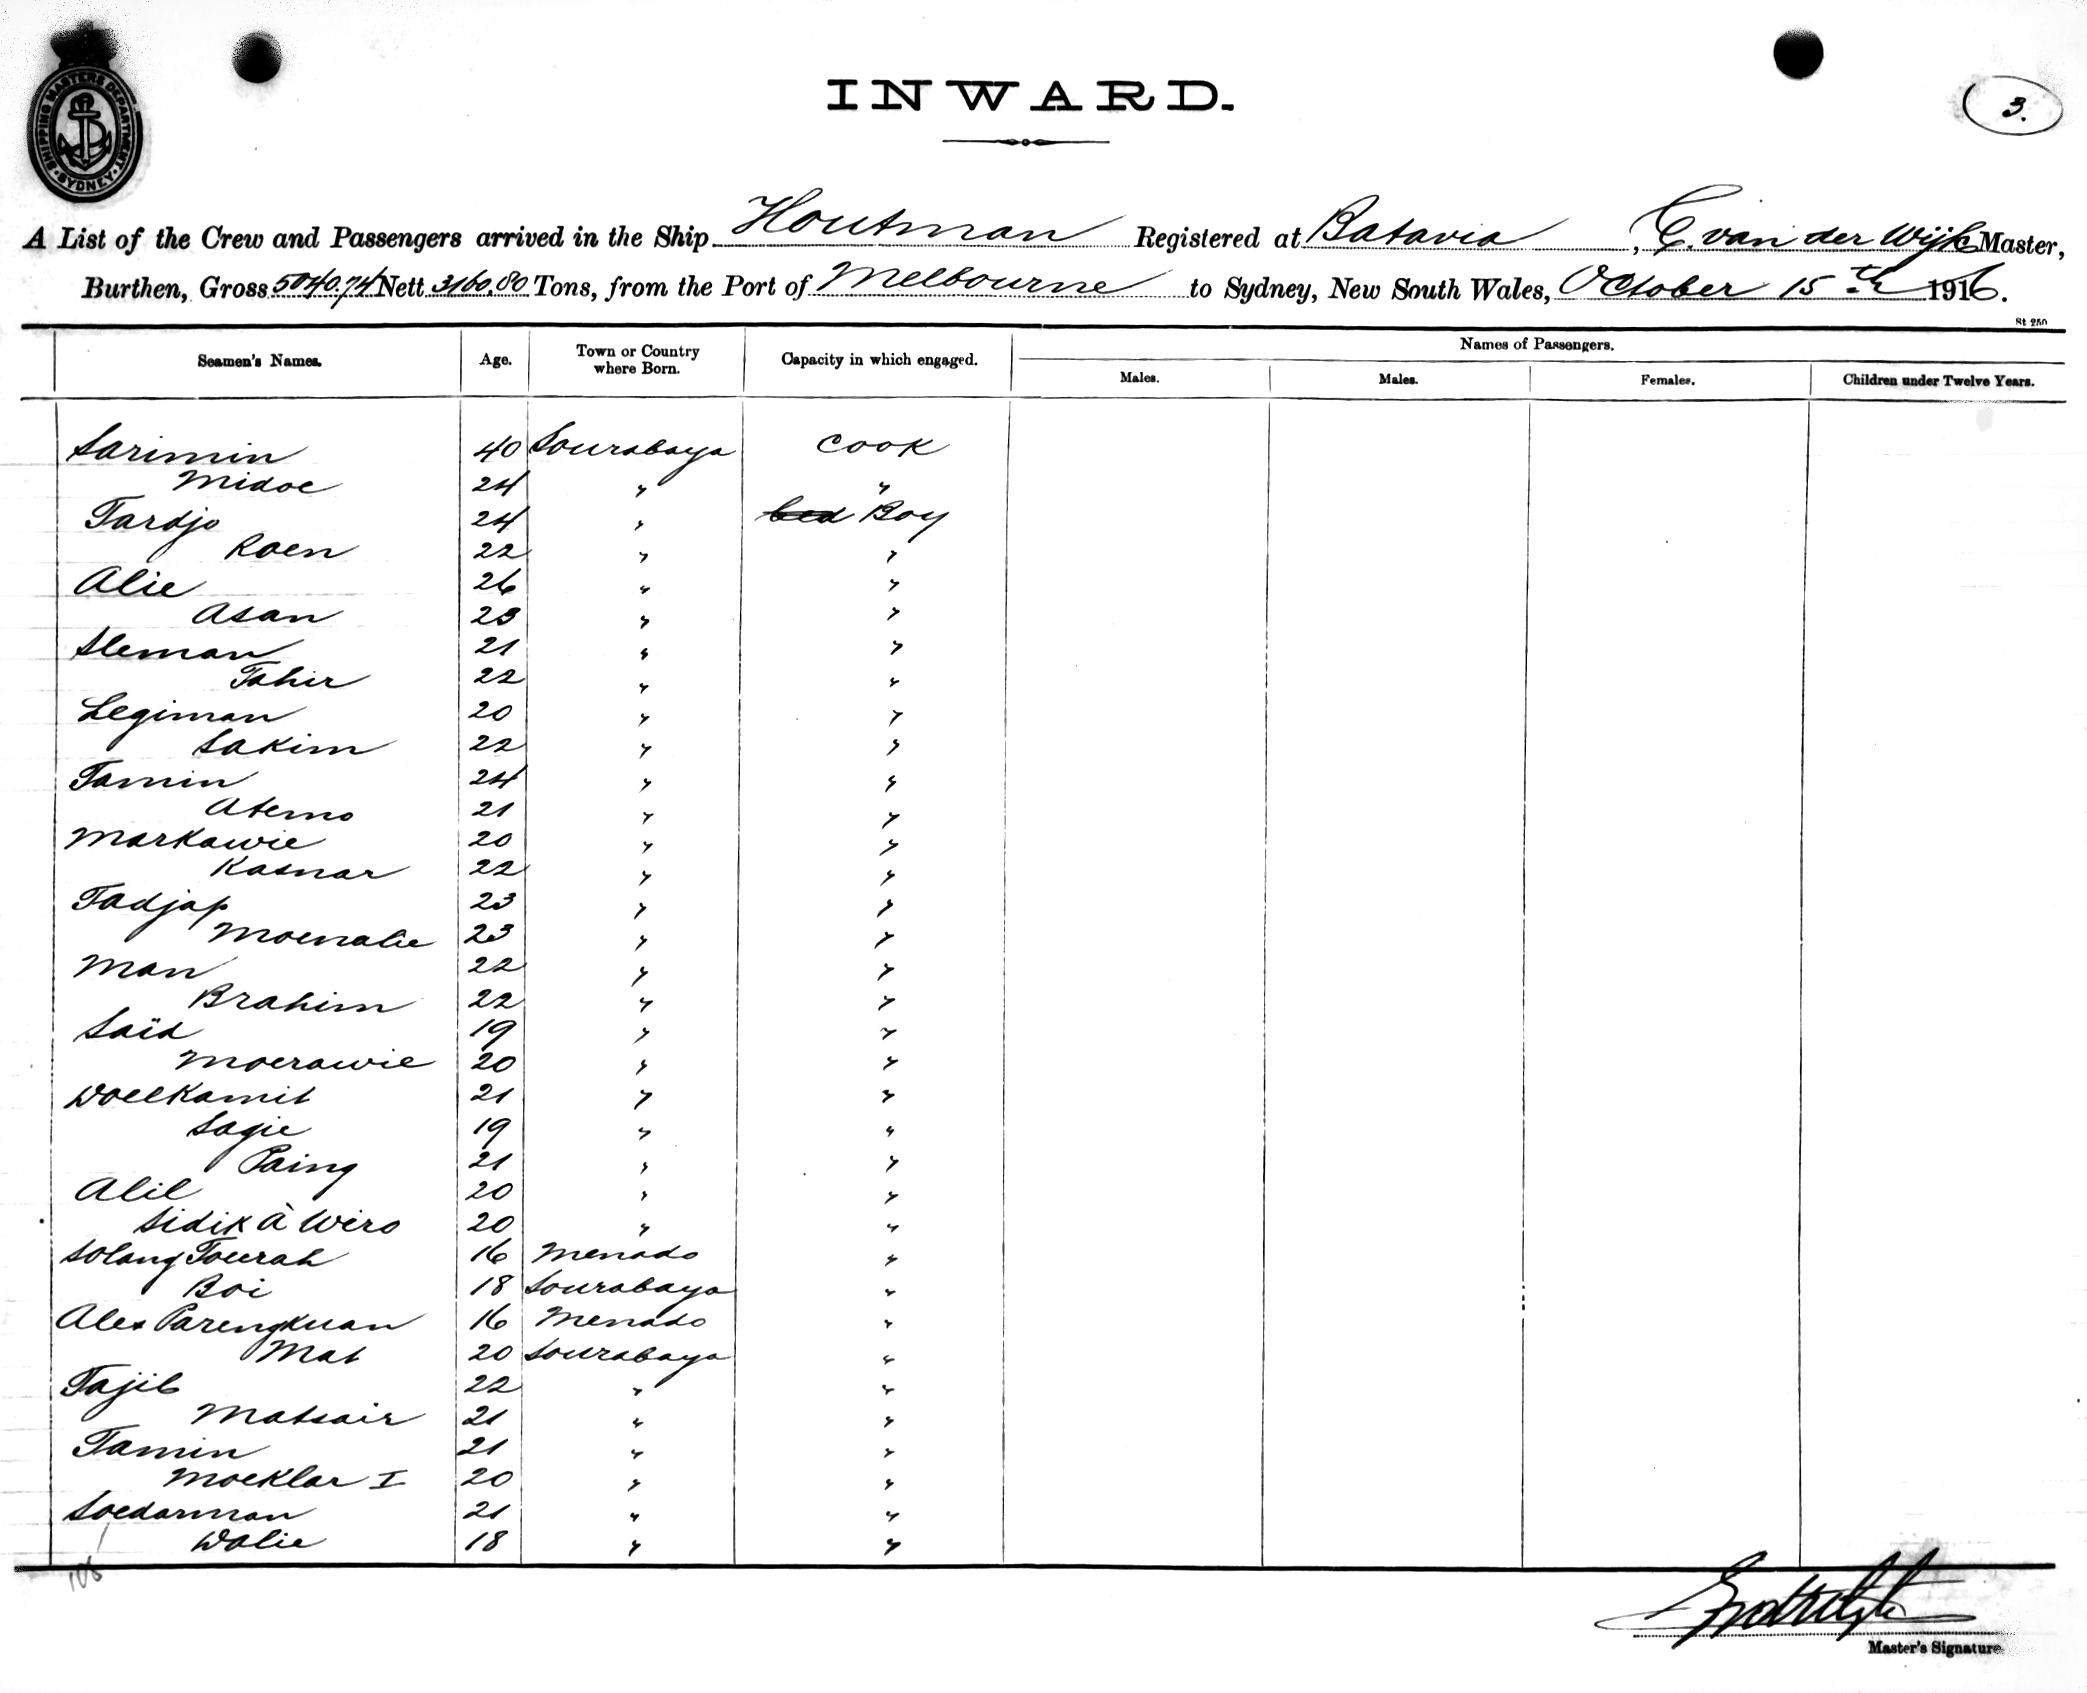 SHIPPING MASTERS DEPARTMENT · SYDNEY ·
INWARD.
3.
A List of the Crew and Passengers arrived in the Ship Houtman Registered at Batavia, C. van der Wijk Master,
Burthen, Gross 5040.74 Nett 3160,80 Tons, from the Port of Melbourne to Sydney, New South Wales, October 15th 1916.
St 250
Seamen's Names. Age. Town or Country where Born. Capacity in which engaged. Names of Passengers.
Males. Males. Females. Children under Twelve Years.
Sarimin 40 Sourabaya Cook
Midoe 24 " "
Tardjo 24 " bed Boy
Roen 22 " "
Alie 26 " "
Asan 23 " "
Sleman 21 " "
Tahir 22 " "
Legiman 20 " "
Sakim 22 " "
Tamin 24 " "
Atemo 21 " "
Markawie 20 " "
Kasnar 22 " "
Tadjap 23 " "
Moenalie 23 " "
Man 22 " "
Brahim 22 " "
Saïd 19 " "
Moerawie 20 " "
Woelkamit 21 " "
Sagie 19 " "
Paing 21 " "
Alil 20 " "
Sidik à Wiro 20 " "
Solang Tourah 16 Menado "
Boi 18 Sourabaya "
Alex Parengkuan 16 Menado "
Mat 20 Sourabaya "
Tajib 22 " "
Matsair 21 " "
Tamin 21 " "
Moeklar I 20 " "
Soedarman 21 " "
Walie 18 " "
Master's Signature